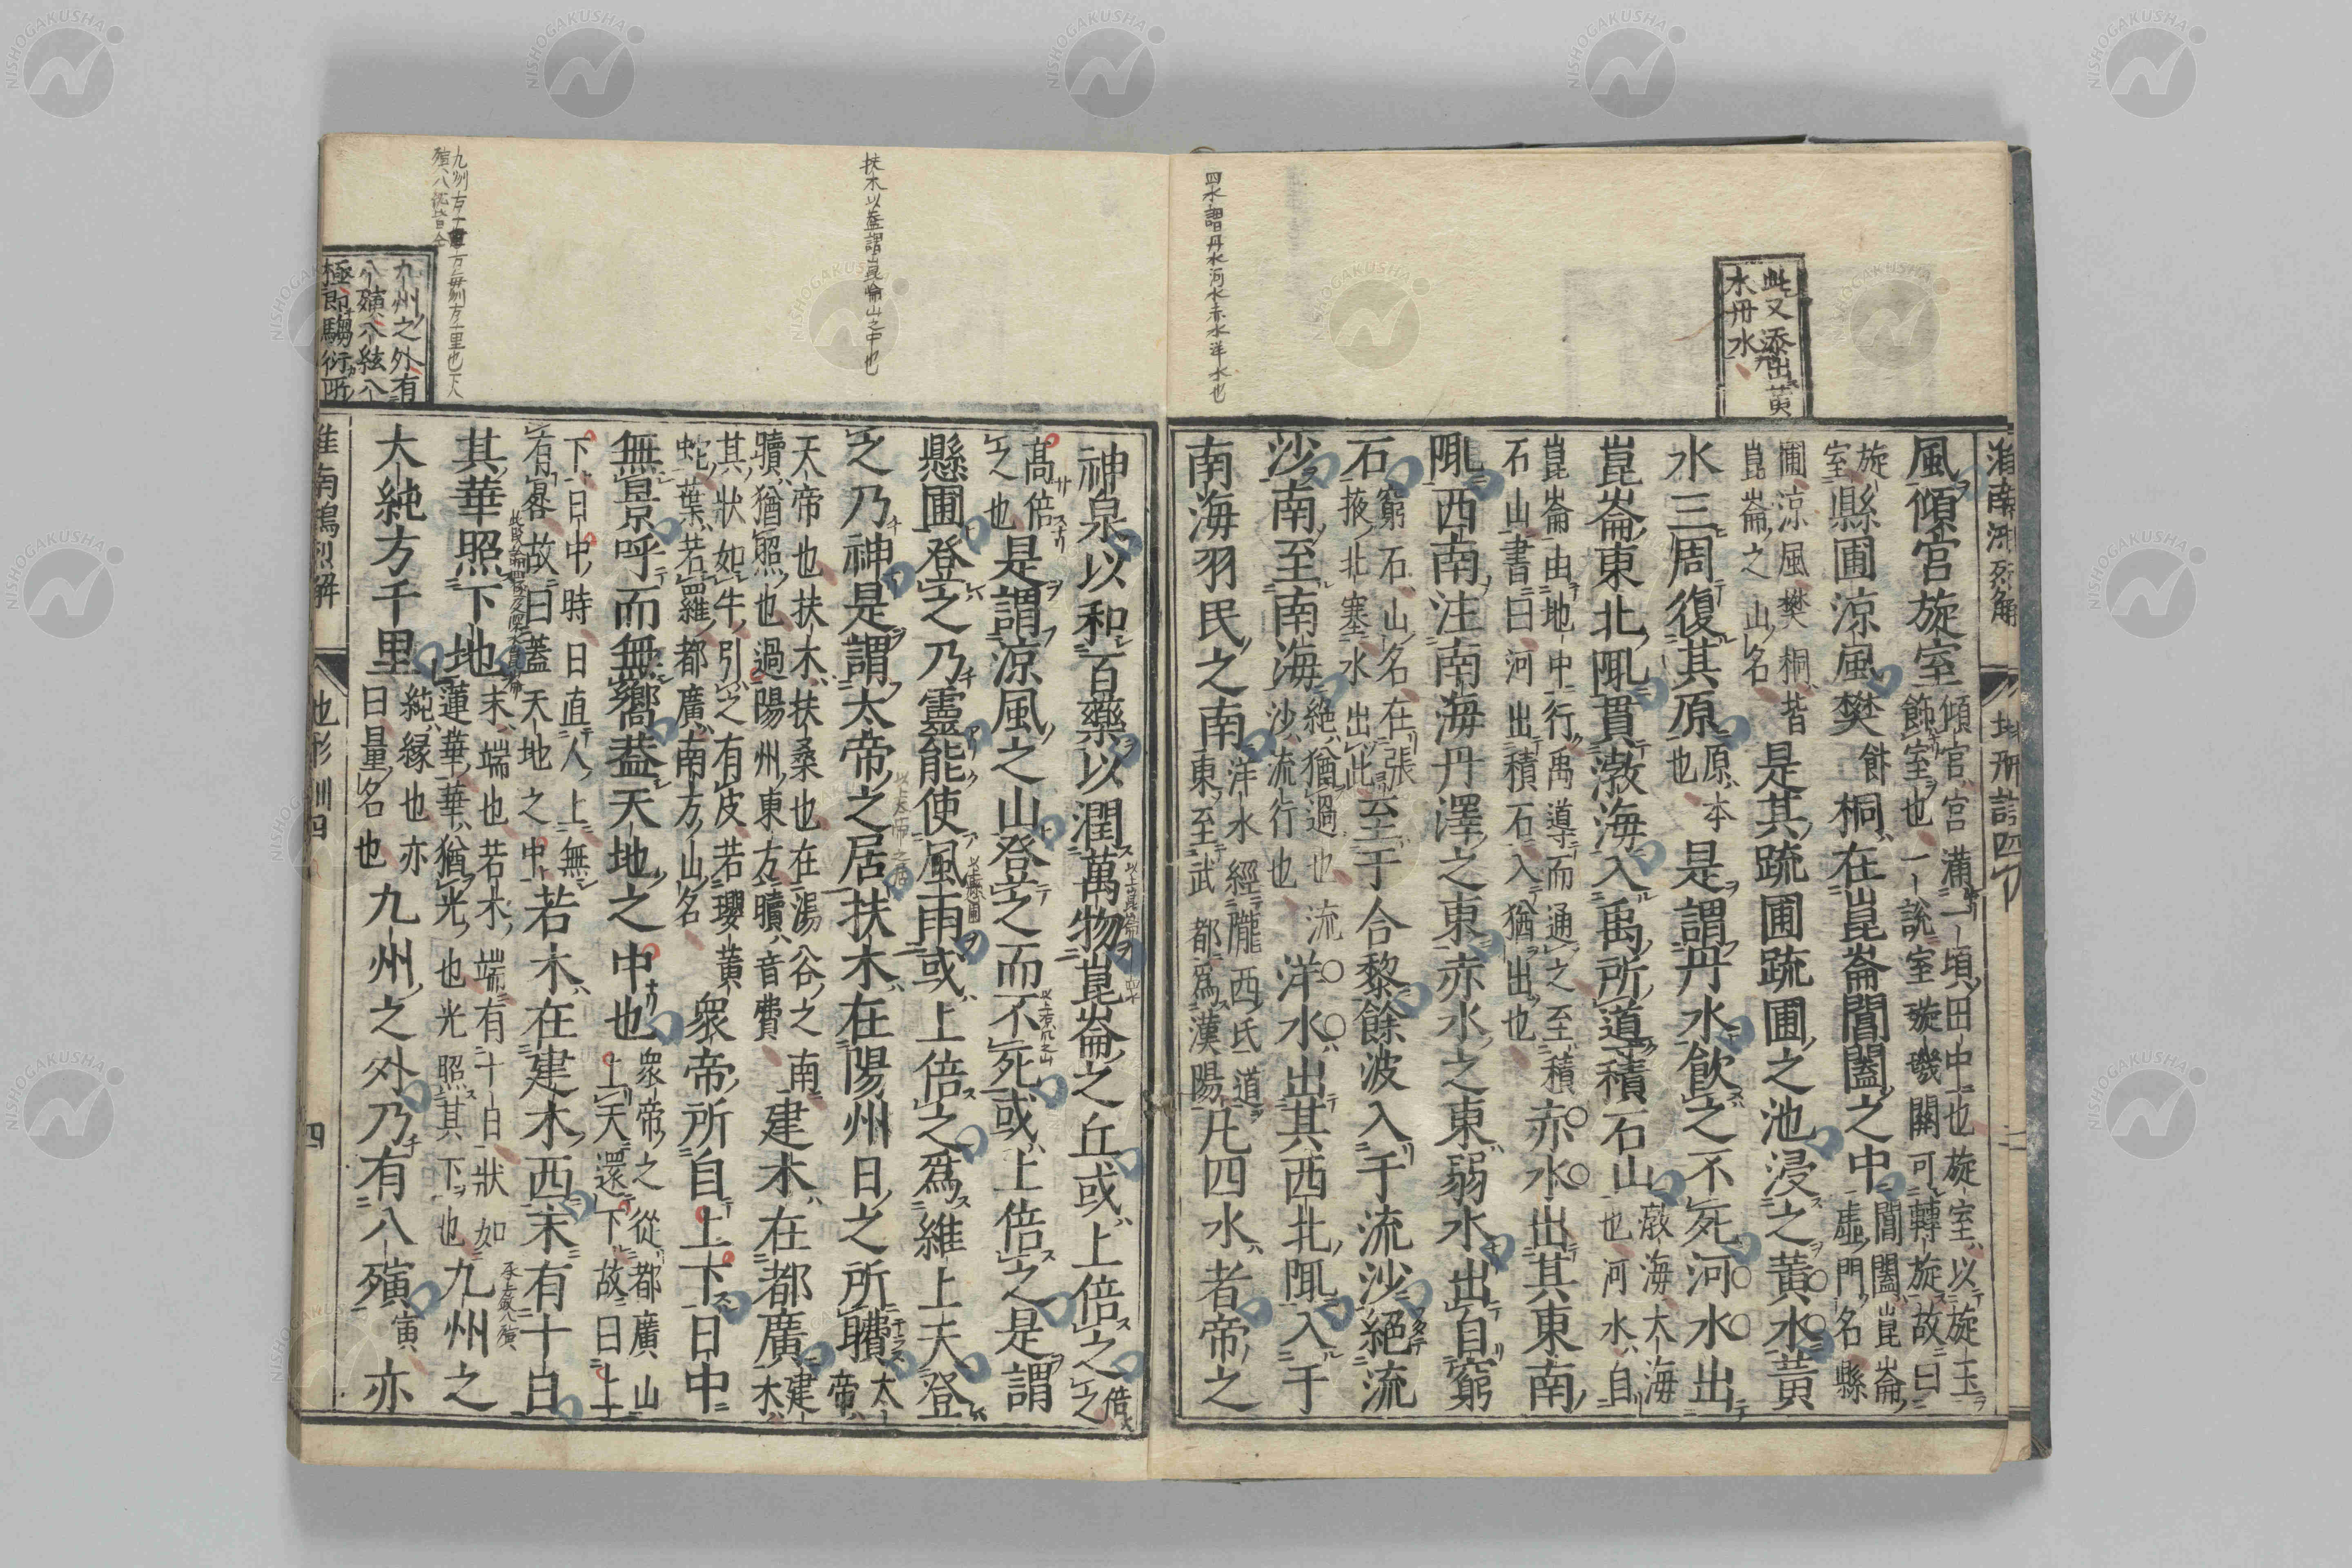 四水謂丹水河水赤水洋水也
此又添出黄
水丹水
風傾宮旋室傾宮宮滿一頃田中也旋室以旋玉
飾室也一說室旋機關可轉旋故曰
旋室縣圃涼風樊桐在崑崙閶闔之中閶闔崑崙
虛門名縣
圃涼風樊桐皆
崑崙之山名是其疏圃疏圃之池浸之黃水黃
水三周復其原原本
也是謂丹水飲之不死河水出
崑崙東北陬貫渤海入禹所道積石山渤海大海
也河水自
崑崙由地中行禹導而通之至積
石山書曰河出積石入猶出也赤水出其東南
陬西南注南海丹澤之東赤水之東弱水出自窮
石窮石山名在張
掖北塞水出此至于合黎餘波入于流沙絕流
沙南至南海絕猶過也流
沙流行也洋水出其西北陬入于
南海羽民之南洋水經隴西氐道
東至武都爲漢陽凡四水者帝之
扶木以益謂崑崙山之中也
神泉以和百藥以潤萬物崑崙之丘或上倍之倍
之
高倍
之也是謂涼風之山登之而不死或上倍之是謂
懸圃登之乃靈能使風雨或上倍之爲維上天登
之乃神是謂太帝之居扶木在陽州日之所曊太
帝
天帝也扶木扶桑也在湯谷之南
曊猶照也過陽州東方曊音費建木在都廣建
木
其狀如牛引之有皮若瓔黃
蛇葉若羅都廣南方山名衆帝所自上下日中
無景呼而無嚮葢天地之中也衆帝之從都廣山
上天還下故曰上
下日中時日直人上無
有晷故曰蓋天地之中若木在建木西末有十日
其華照下地末端也若木端有十日狀如
蓮華華猶光也光照其下也九州之
大純方千里純緣也亦
曰量名也九州之外乃有八殥殥寅亦
九州之外有
八殥八紘八
極即騶衍所
淮南鴻烈解
地形訓四
四